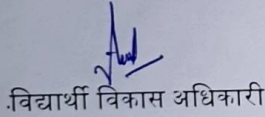 .विद्यार्थी विकास अधिकारी